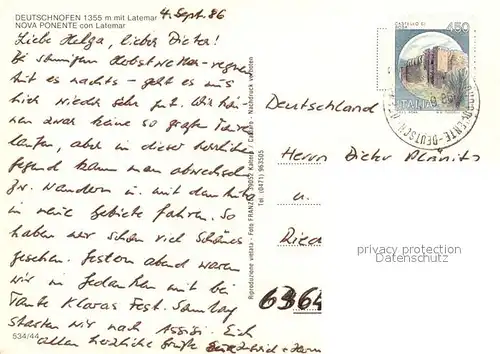 DEUTSCHNOFEN 1355 m mit Latemar
NOVA PONENTE con Latemar
4. Sept. 86
Liebe Helga, lieber Dieter!
Bei sonnigem Herbstwetter - regnen
tut es nachts - geht es uns
hier wieder sehr gut. Wir kön-
nen zwar keine so großen Touren
laufen, aber in dieser herrlichen
Gegend kann man abwechselnd
zu wandern u. mit dem Auto
in neue Gebiete fahren. So
haben wir schon viel Schönes
gesehen. Gestern abend waren
wir in Gedanken mit bei
Tante Klaras Fest. Samstag
starten wir nach Assisi. Euch
allen herzliche Grüße
534/44
Riproduzione vietata - Foto FRANZL, 39052 Kaltern / Caldaro - Nachdruck verboten
Tel. (0471) 963505
CASTELLO DI
450
ITALIA
Deutschland
Herrn Dieter
u.
6364
privacy protection
for Delcampe